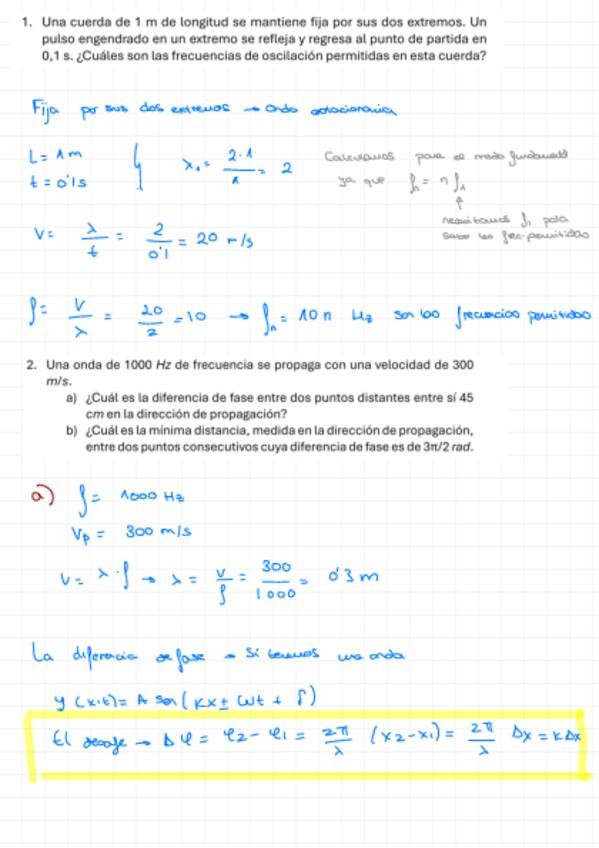 1. Una cuerda de 1 m de longitud se mantiene fija por sus dos extremos. Un
pulso engendrado en un extremo se refleja y regresa al punto de partida en
0,1 s. ¿Cuáles son las frecuencias de oscilación permitidas en esta cuerda?
Fija por sus dos extremos → Onda estacionaria
L = 1m
t = 0'1s
λ₁ = 2·1/1 = 2
Calculamos para el modo fundamental
ya que fₙ = n f₁
↑
necesitamos f₁ para
saber las frec. permitidas
V = λ/t = 2/0'1 = 20 m/s
f = V/λ = 20/2 = 10 → fₙ = 10n Hz son las frecuencias permitidas
2. Una onda de 1000 Hz de frecuencia se propaga con una velocidad de 300
m/s.
a) ¿Cuál es la diferencia de fase entre dos puntos distantes entre sí 45
cm en la dirección de propagación?
b) ¿Cuál es la mínima distancia, medida en la dirección de propagación,
entre dos puntos consecutivos cuya diferencia de fase es de 3π/2 rad.
a) f = 1000 Hz
Vp = 300 m/s
V = λ·f → λ = V/f = 300/1000 = 0'3 m
La diferencia de fase → Si tenemos una onda
y(x,t) = A sen(kx ± ωt + δ)
El desfase → Δφ = φ2 - φ1 = 2π/λ (x2 - x1) = 2π/λ Δx = kΔx